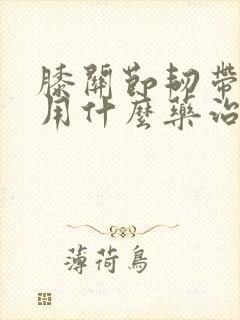 膝關節韌帶
用什麼藥治
薄荷鳥